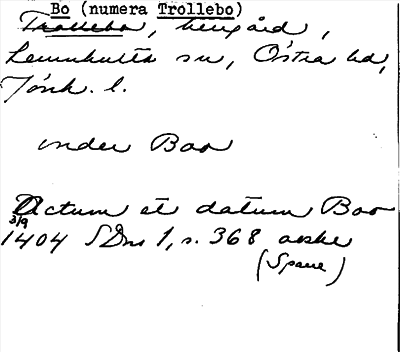 Bo (numera Trollebo)
Trollebo, herrgård,
Lemnhults sn, Östra hd,
Jönk. l.
under Boo
Actum et datum Boo
3/9
1404 SDns 1, s. 368 avskr
(Spare)